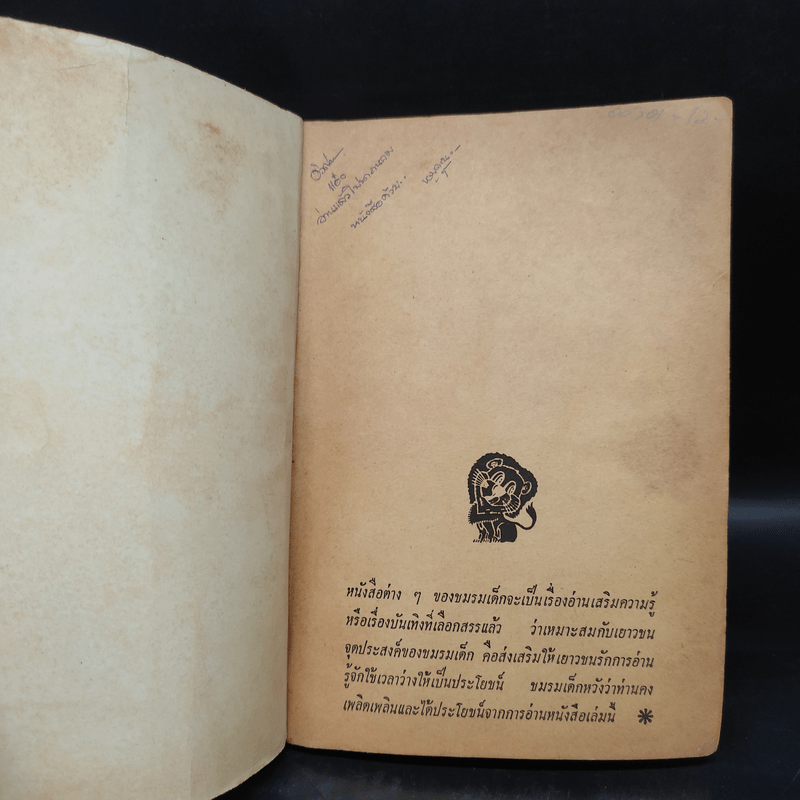 อ่านแล้วไปหา
หนังสือด้วย..
หนังสือต่าง ๆ ของชมรมเด็กจะเป็นเรื่องอ่านเสริมความรู้
หรือเรื่องบันเทิงที่เลือกสรรแล้ว ว่าเหมาะสมกับเยาวชน
จุดประสงค์ของชมรมเด็ก คือส่งเสริมให้เยาวชนรักการอ่าน
รู้จักใช้เวลาว่างให้เป็นประโยชน์ ชมรมเด็กหวังว่าท่านคง
เพลิดเพลินและได้ประโยชน์จากการอ่านหนังสือเล่มนี้ *